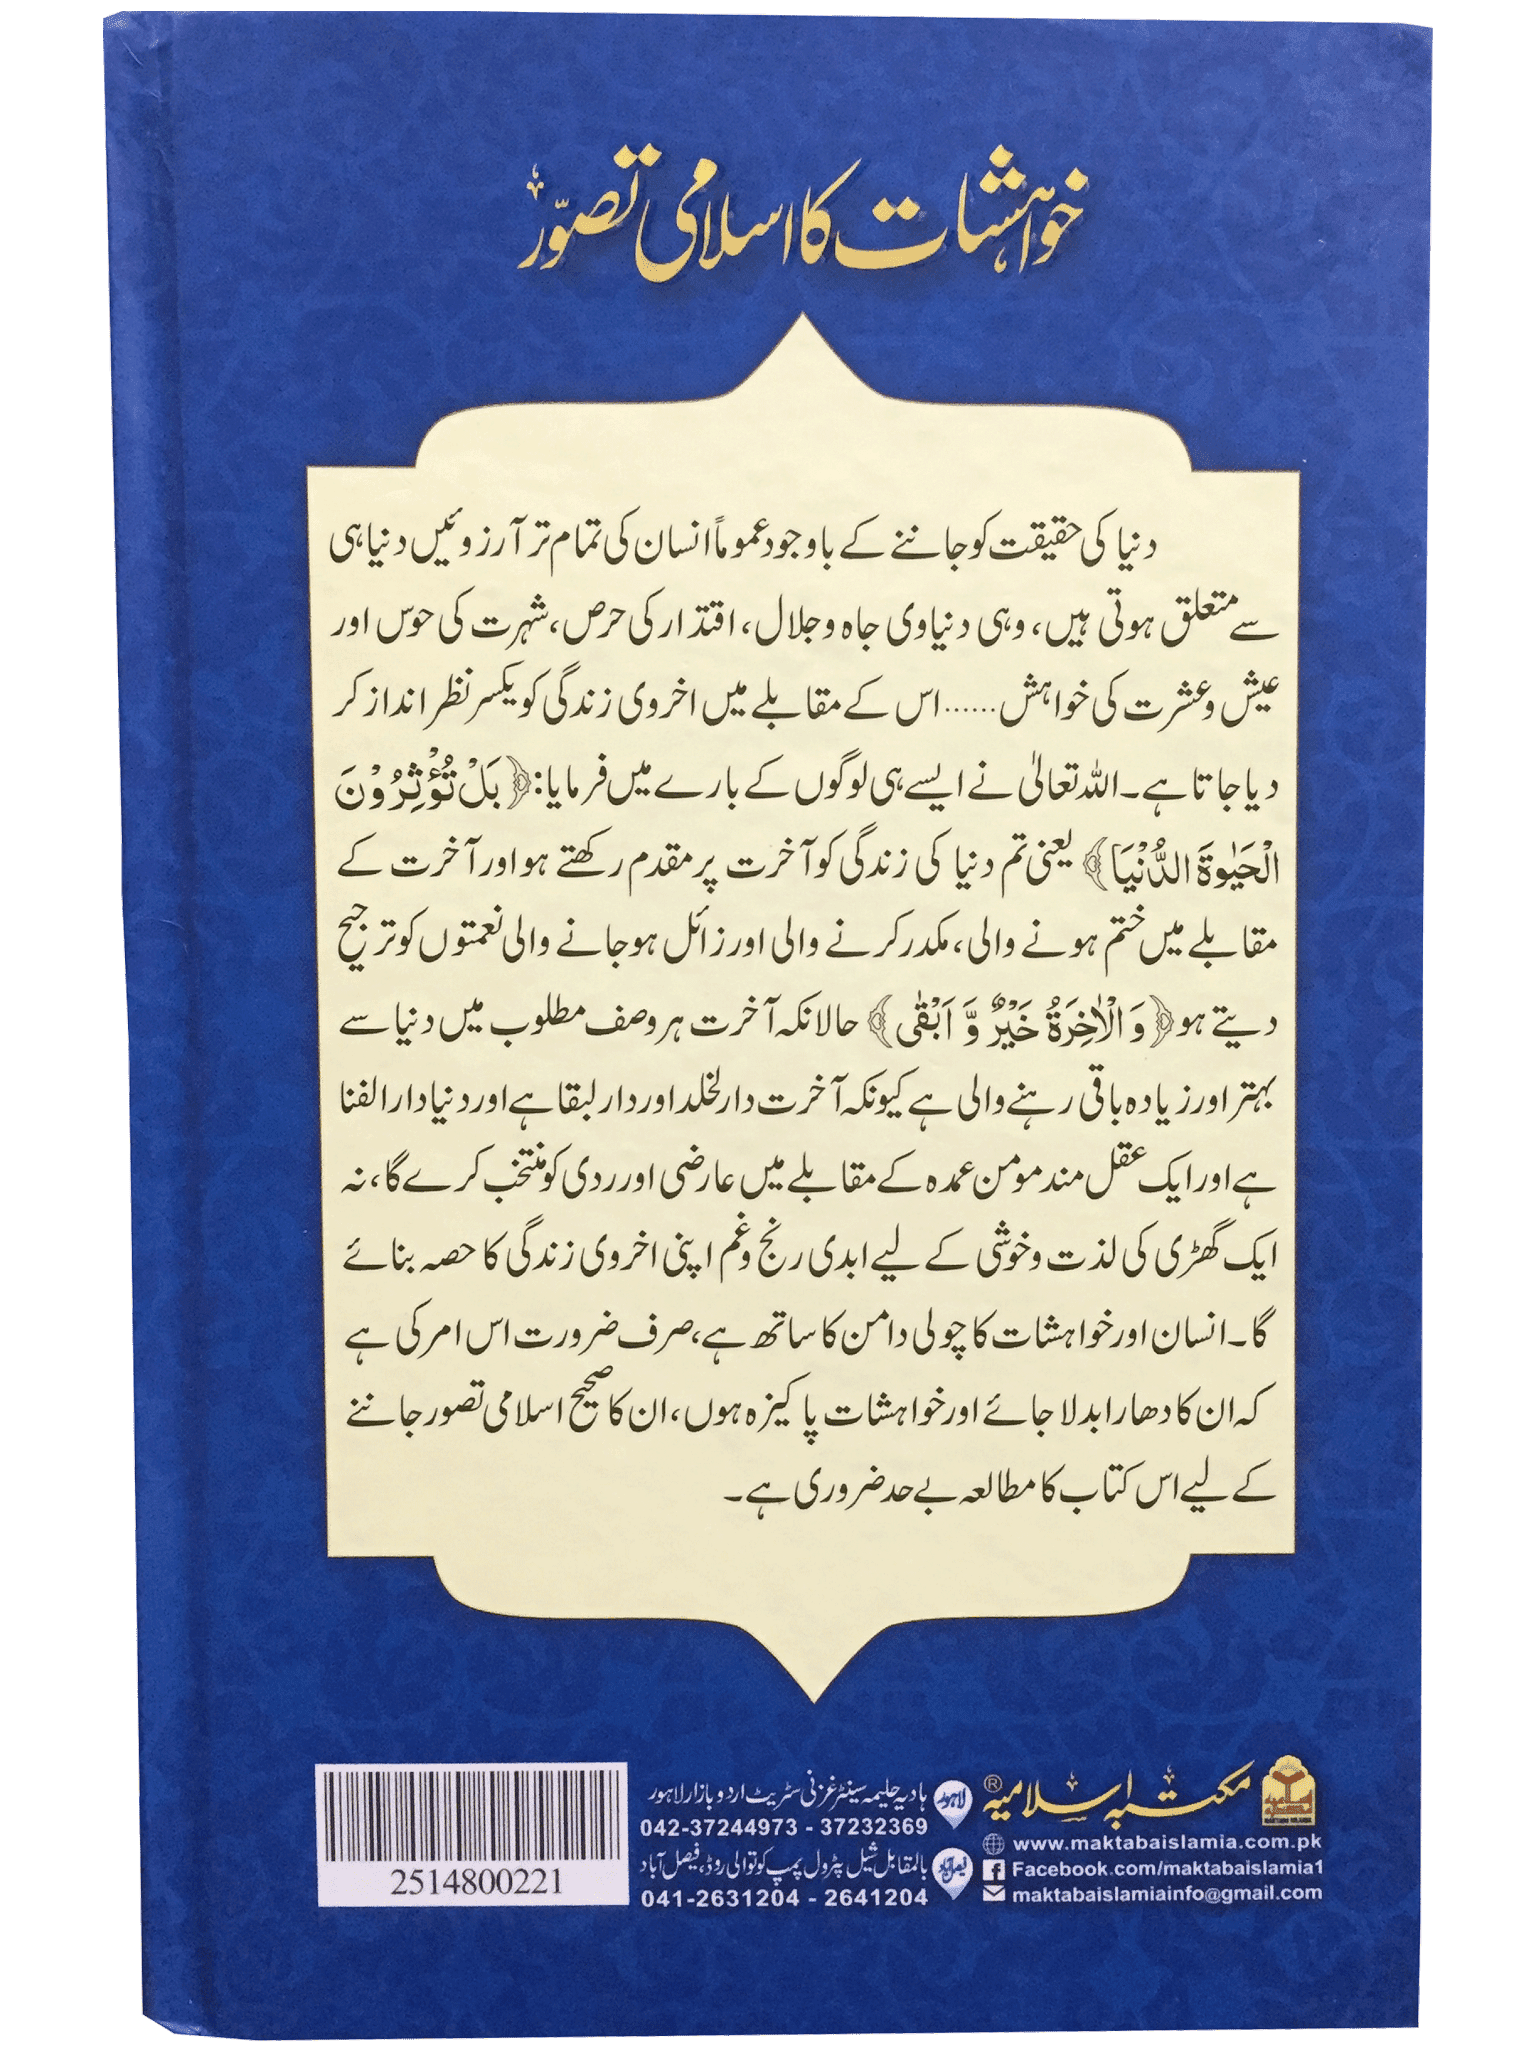 خواہشات کا اسلامی تصوّر
دنیا کی حقیقت کو جاننے کے باوجود عموماً انسان کی تمام تر آرزوئیں دنیا ہی
سے متعلق ہوتی ہیں، وہی دنیاوی جاہ و جلال، اقتدار کی حرص، شہرت کی حوس اور
عیش و عشرت کی خواہش...... اس کے مقابلے میں اخروی زندگی کو یکسر نظر انداز کر
دیا جاتا ہے۔ اللہ تعالیٰ نے ایسے ہی لوگوں کے بارے میں فرمایا: ﴿بَلْ تُؤْثِرُوْنَ
الْحَيٰوةَ الدُّنْيَا﴾ یعنی تم دنیا کی زندگی کو آخرت پر مقدم رکھتے ہو اور آخرت کے
مقابلے میں ختم ہونے والی، مکدر کرنے والی اور زائل ہو جانے والی نعمتوں کو ترجیح
دیتے ہو ﴿وَ الْاٰخِرَةُ خَيْرٌ وَّ اَبْقٰى﴾ حالانکہ آخرت ہر وصف مطلوب میں دنیا سے
بہتر اور زیادہ باقی رہنے والی ہے کیونکہ آخرت دار لخلد اور دار لبقا ہے اور دنیا دار الفنا
ہے اور ایک عقل مند مومن عمدہ کے مقابلے میں عارضی اور ردی کو منتخب کرے گا، نہ
ایک گھڑی کی لذت و خوشی کے لیے ابدی رنج و غم اپنی اخروی زندگی کا حصہ بنائے
گا۔ انسان اور خواہشات کا چولی دامن کا ساتھ ہے، صرف ضرورت اس امر کی ہے
کہ ان کا دھارا بدلا جائے اور خواہشات پاکیزہ ہوں، ان کا صحیح اسلامی تصور جاننے
کے لیے اس کتاب کا مطالعہ بے حد ضروری ہے۔
مکتبہ اسلامیہ ®
www.maktabaislamia.com.pk
Facebook.com/maktabaislamia1
maktabaislamiainfo@gmail.com
لاہور
ہادیہ حلیمہ سینٹر غزنی سٹریٹ اردو بازار لاہور
042-37244973 - 37232369
فیصل آباد
بالمقابل شیل پٹرول پمپ کوتوالی روڈ، فیصل آباد
041-2631204 - 2641204
2514800221